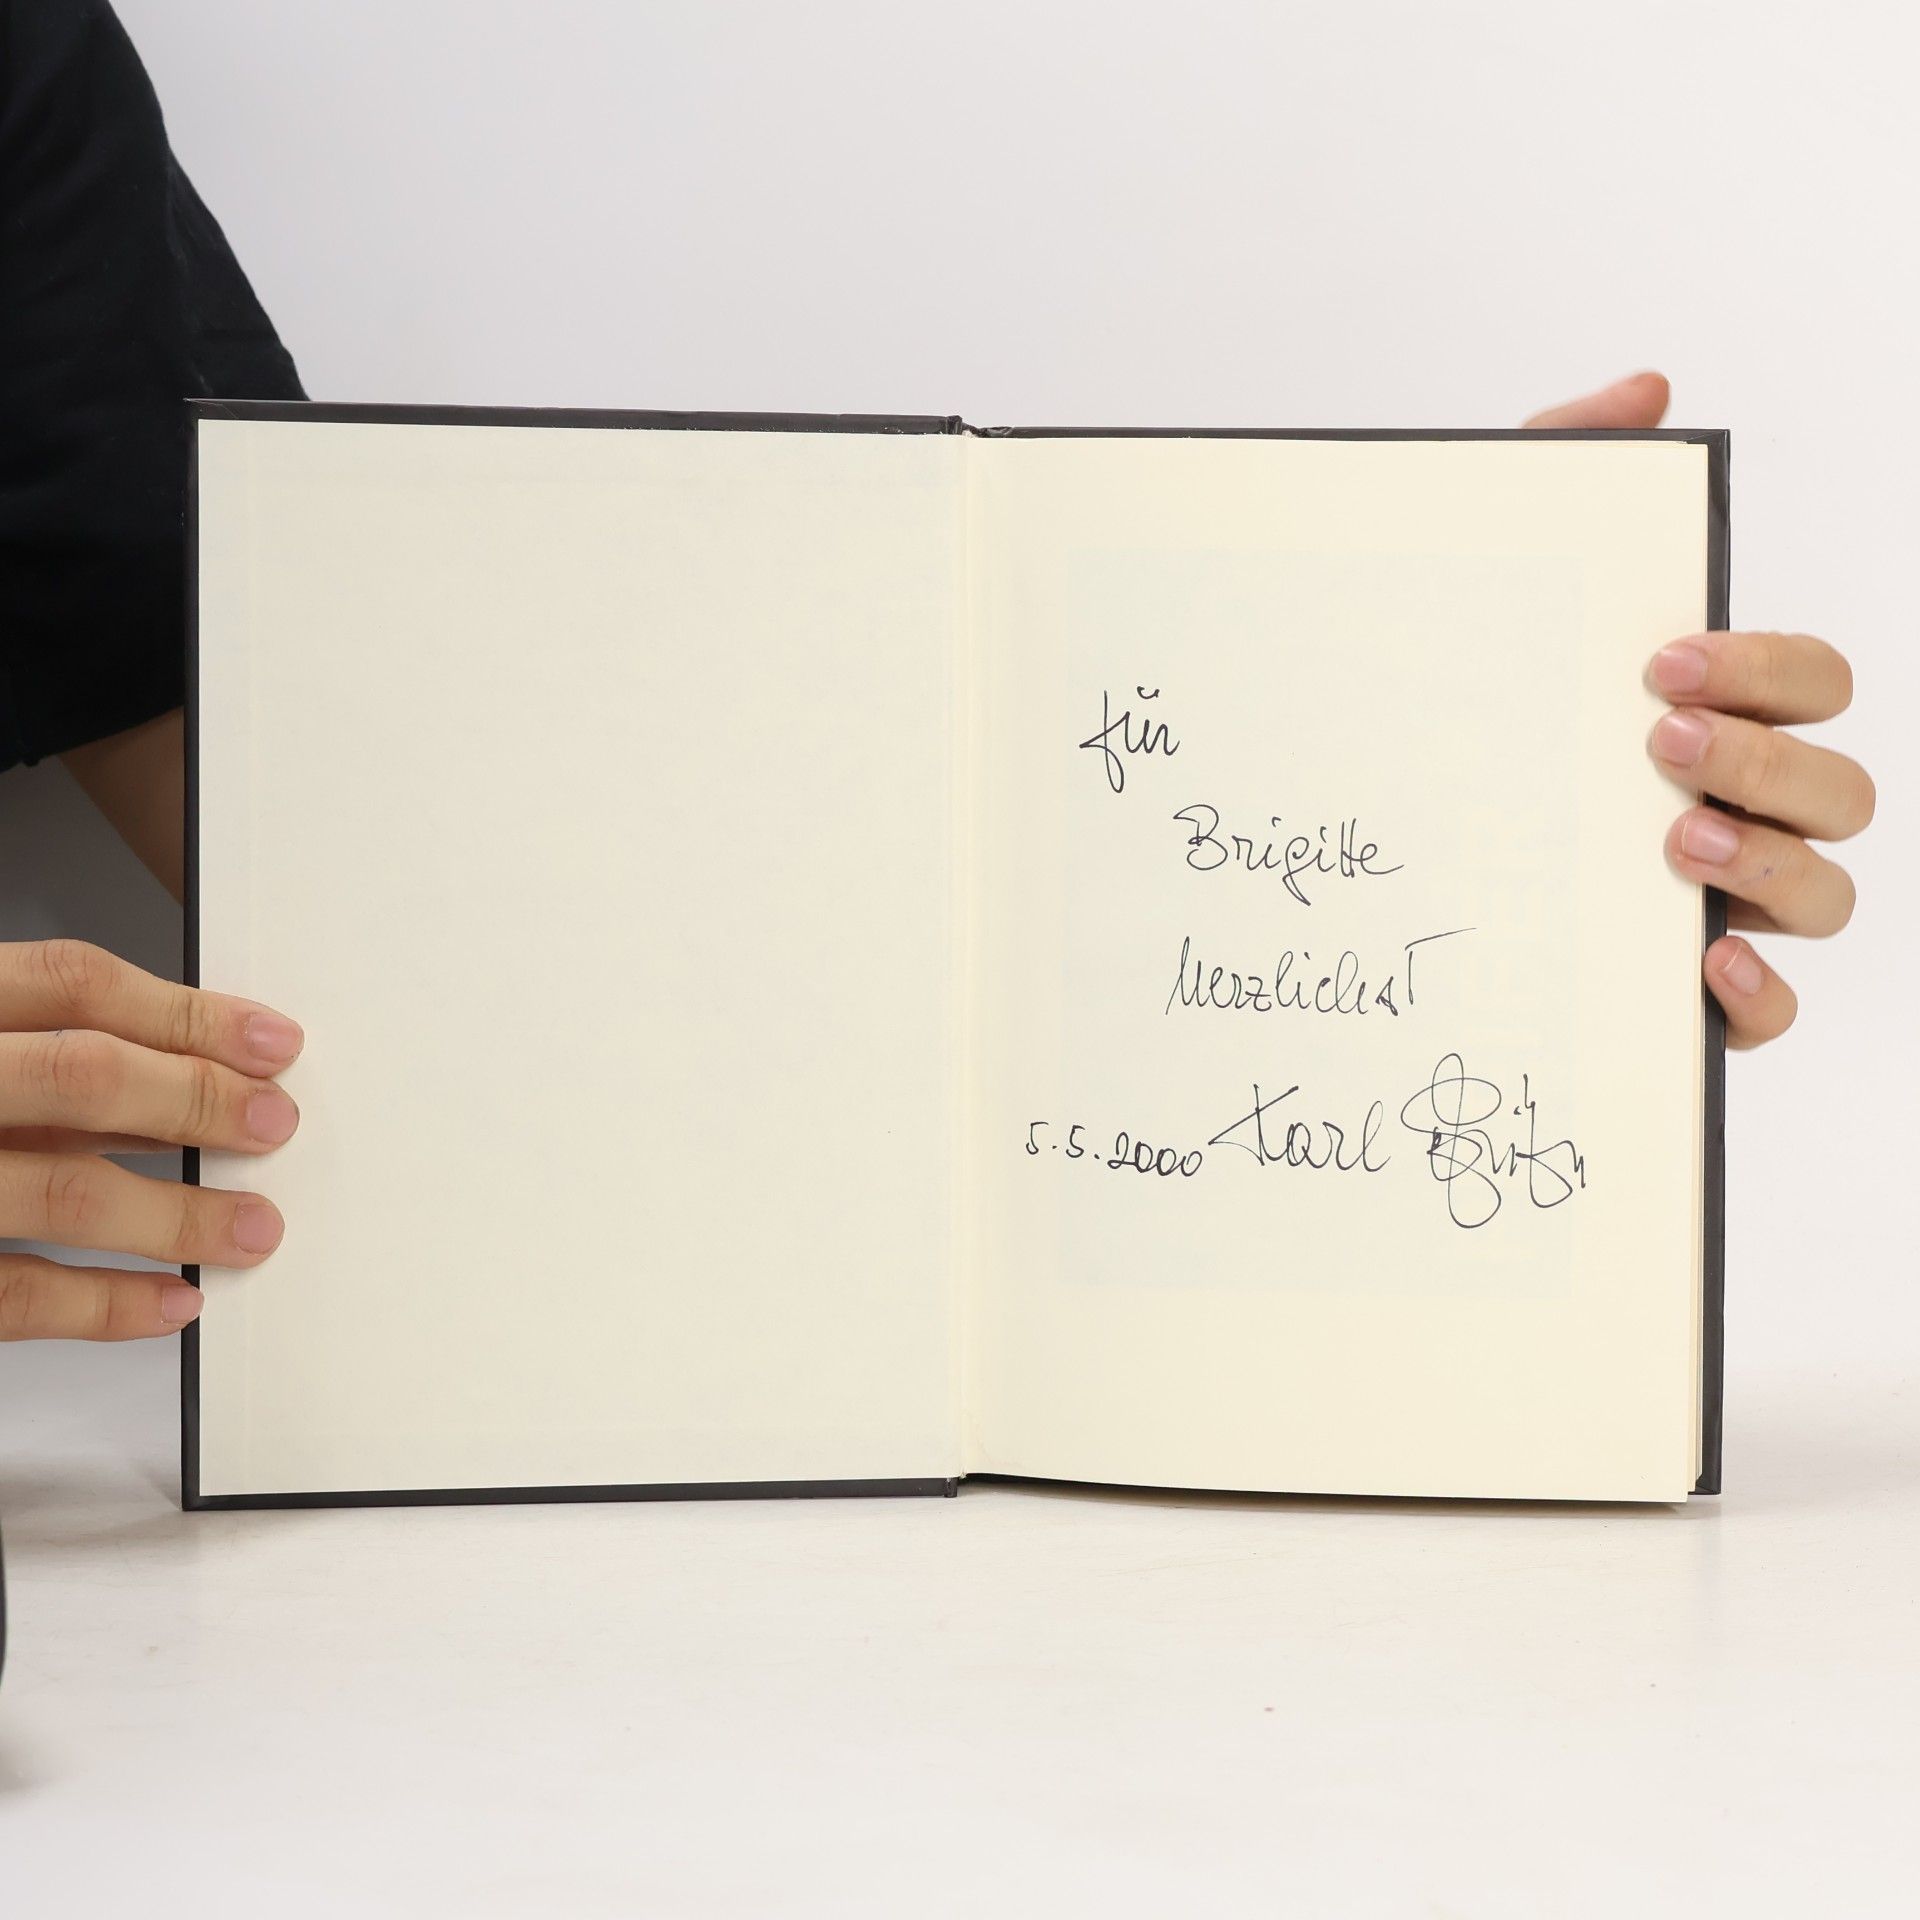 für
Brigitte
Herzlichst
5.5.2000 Karl